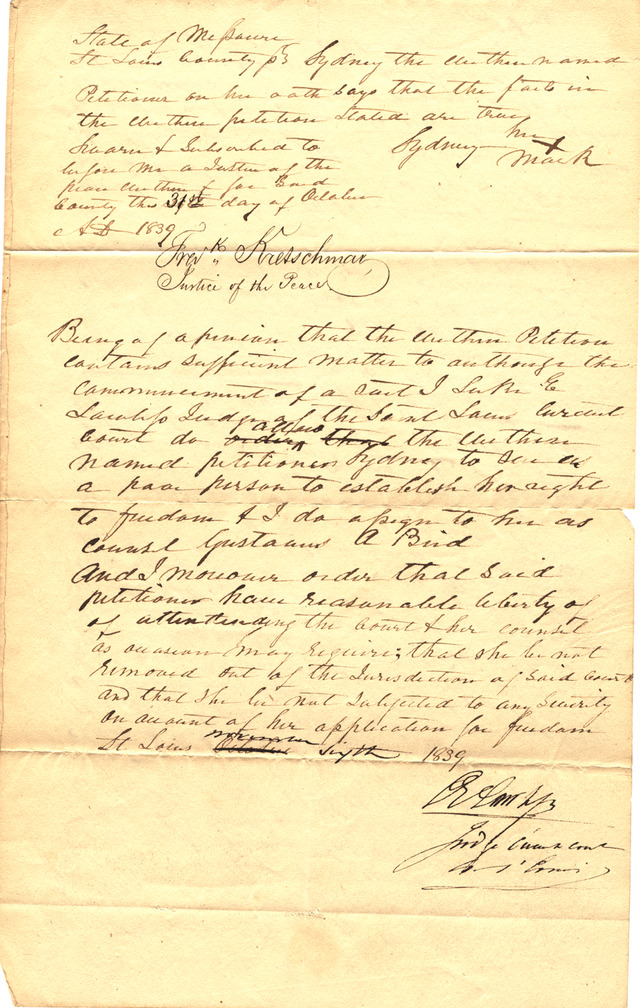 State of Missouri
St Louis County ss Sydney the within named
Petitioner on her oath says that the facts in
the within petition stated are true
Sworn & Subscribed to
Sydney her X mark
before me a Justice of the
peace within & for said
County this 31st day of October
AD 1839
Fredk Kretschmar
Justice of the Peace
Being of opinion that the within Petition
contains sufficient matter to authorize the
commencement of a suit I Luke E
Lawless Judge of the Saint Louis Circuit
Court do allow the within
named petitioner Sydney to sue as
a poor person to establish her right
to freedom & I do assign to her as
counsel Gustavus A Bird
And I moreover order that said
petitioner have reasonable liberty of
of attending the Court & her counsel
as occasion may require; that she be not
removed out of the Jurisdiction of said Court
and that she be not subjected to any severity
on account of her application for freedom
St Louis November sixth 1839
Judge Circuit Court